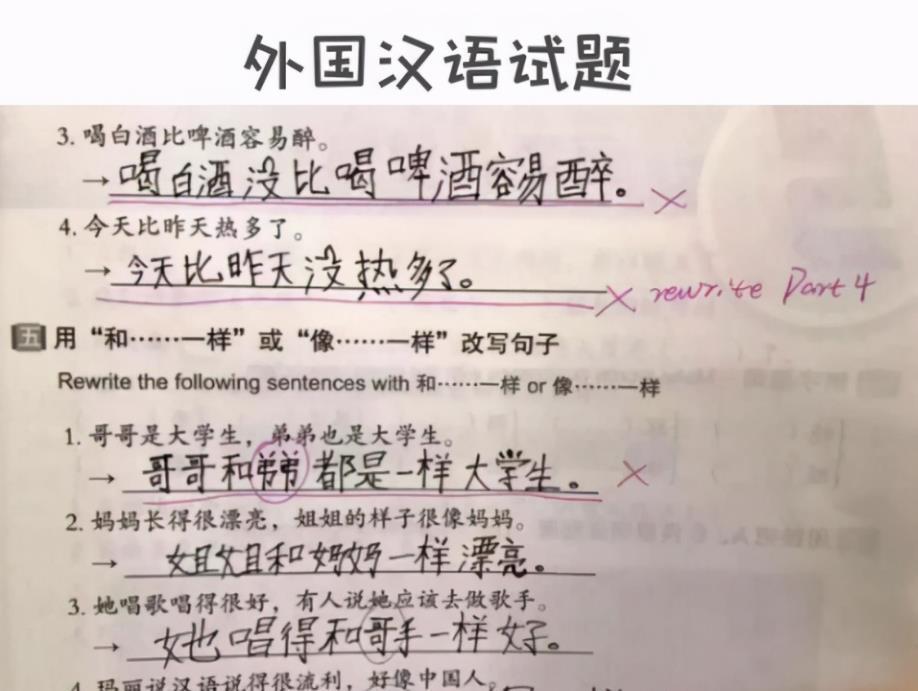 外国汉语试题
3. 喝白酒比啤酒容易醉。
→ 喝白酒没比喝啤酒容易醉。 ×
4. 今天比昨天热多了。
→ 今天比昨天没热多了。 × rewrite Part 4
五 用“和……一样”或“像……一样”改写句子
Rewrite the following sentences with 和……一样 or 像……一样
1. 哥哥是大学生，弟弟也是大学生。
→ 哥哥和弟弟都是一样大学生。 ×
2. 妈妈长得很漂亮，姐姐的样子很像妈妈。
→ 姐姐和妈妈一样漂亮。
3. 她唱歌唱得很好，有人说她应该去做歌手。
→ 她唱得和哥手一样好。
4. 玛丽说汉语说得很流利，好像中国人。